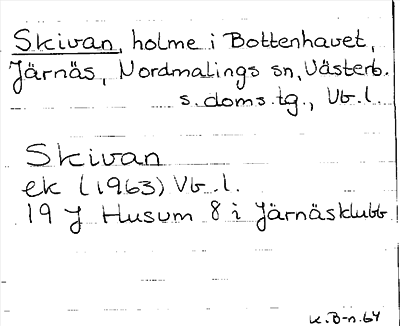 Skivan, holme i Bottenhavet,
Järnäs, Nordmalings sn, Västerb.
s. doms. tg., Vb. l.
Skivan
ek (1963) Vb. l.
19 J Husum 8 i Järnäsklubb
K. B-n. 64